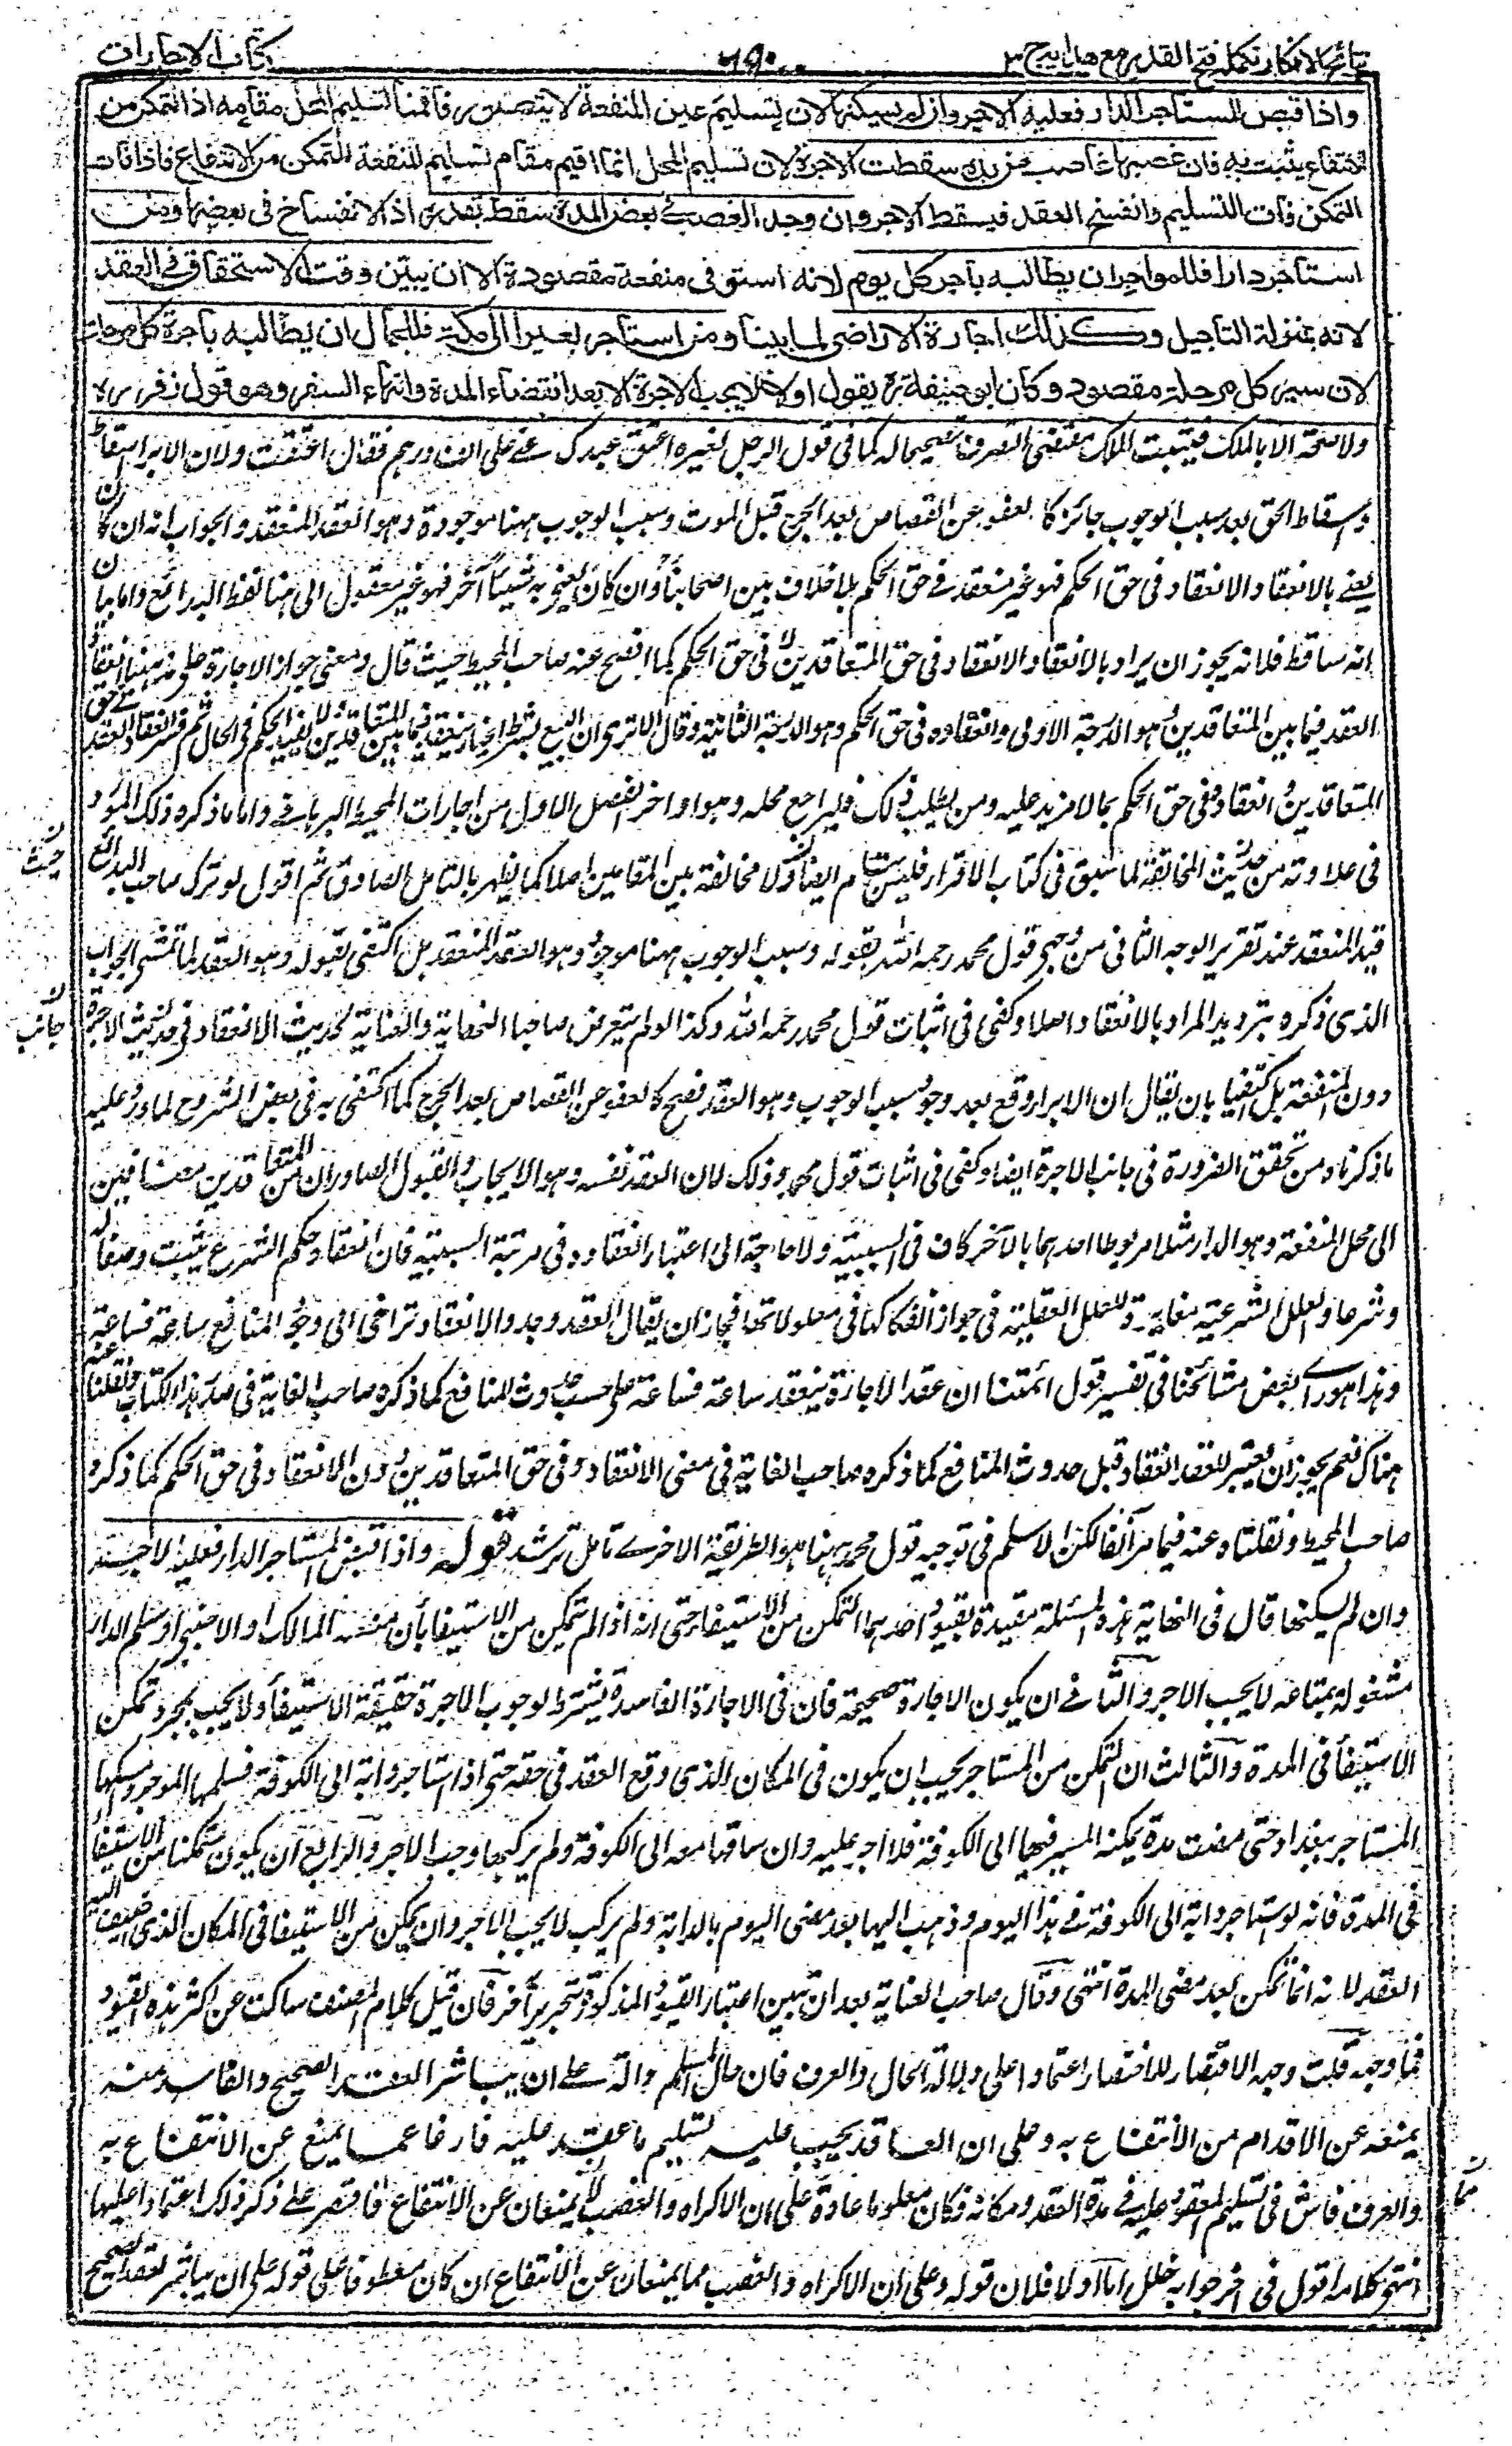 نتائج الافكار تكمله فتح القدير مع هدايه ج ٣
٦٩٠
كتاب الاجارات
واذا قبض المستاجر الدار فعليه الاجر وان لم يسكنها لان تسليم عين المنفعة لا يتصور فاقمنا تسليم المحل مقامه اذ التمكن من
الانتفاع يثبت به فان غصبها غاصب من يده سقطت الاجرة لان تسليم المحل انما اقيم مقام تسليم المنفعة للتمكن من الانتفاع فاذا فات
التمكن فات التسليم وانفسخ العقد فيسقط الاجر وان وجد الغصب في بعض المدة سقط بقدره اذ الانفساخ في بعضها ومن
استاجر دارا فللمواجر ان يطالبه باجر كل يوم لانه استوفى منفعة مقصودة الا ان يبين وقت الاستحقاق في العقد
لانه بمنزلة التاجيل وكذلك اجارة الاراضى لما بينا ومن استاجر بعيرا الى مكة فللجمال ان يطالبه باجرة كل مرحلة
لان سير كل مرحلة مقصود وكان ابو حنيفة رح يقول اولا لا يجب الاجرة الا بعد انقضاء المدة وانتهاء السفر وهو قول زفر ره
ولا صحة الا بالملك فيثبت الملك مقتضى التصرف تصحيحا له كما في قول الرجل لغيره اعتق عبدك عنى على الف درهم فقال اعتقت ولان الابراء اسقاط
واسقاط الحق بعد سبب الوجوب جائز كالعفو عن القصاص بعد الجرح قبل الموت وسبب الوجوب ههنا موجودة وهو العقد المنعقد والجواب انه ان كان
يعنى بالانعقاد الانعقاد في حق الحكم فهو غير منعقد في حق الحكم بلا خلاف بين اصحابنا وان كان يعنى به شيئا آخر فهو غير معقول الى هنا لفظ البدائع واما بيان
انه ساقط فلانه يجوز ان يراد بالانعقاد الانعقاد في حق المتعاقدين لا في حق الحكم كما افصح عنه صاحب المحيط حيث قال ومعنى جواز الاجارة على مذهبنا انعقاد
العقد فيما بين المتعاقدين وهو الدرجة الاولى وانعقاده في حق الحكم وهو الدرجة الثانية وقال الا ترى ان البيع بشرط الخيار ينعقد فيما بين المتعاقدين ولا يفيد الحكم في الحال ثم فسر انعقاد العقد في حق
المتعاقدين وانعقاده في حق الحكم بما لا مزيد عليه ومن يطلب ذلك فليراجع محله وهو اواخر الفصل الاول من اجارات المحيط البرهانى واما ما ذكره ذلك المورد
في علاوته من حديث المخالفة لما سبق في كتاب الاقرار فليس بتام ايضا اذ لا مخالفة بين المقامين اصلا كما يظهر بالتامل الصادق ثم اقول لو ترك صاحب البدائع
قيد المنعقد عند تقرير الوجه الثانى من وجهى قول محمد رحمه الله بقوله وسبب الوجوب ههنا موجود وهو العقد المنعقد بل اكتفى بقوله وهو العقد لما تمشى الجواب
الذى ذكره بترديد المراد بالانعقاد اصلا وكفى في اثبات قول محمد رحمه الله وكذا لو لم يتعرض صاحبا النهاية والعناية لحديث الانعقاد في حق الاجرة
دون المنفعة بل اكتفيا بان يقال ان الابراء وقع بعد وجود سبب الوجوب وهو العقد فصح كالعفو عن القصاص بعد الجرح كما اكتفى به في بعض الشروح لما ورد عليه
ما ذكرناه من تحقق الضرورة في جانب الاجرة ايضا وكفى في اثبات قول محمد وذلك لان العقد نفسه وهو الايجاب والقبول الصادران من المتعاقدين مضافين
الى محل المنفعة وهو الدار مثلا مربوطا احدهما بالآخر كاف في السببية ولا حاجة الى اعتبار انعقاده في مرتبة السببية فان انعقاد حكم الشرع يثبت وصفا له
وشرعا والعلل الشرعية مغايرة للعلل العقلية في جواز انفكاكها في معلولاتها فجاز ان يقال العقد وجد والانعقاد تراخى الى وجود المنافع ساعة فساعة
وهذا هو راى بعض مشائخنا في تفسير قول ائمتنا ان عقد الاجارة ينعقد ساعة فساعة على حسب حدوث المنافع كما ذكره صاحب الغاية في صدر هذا الكتاب ونقلناه عنه
هناك نعم يجوز ان يعتبر للعقد انعقاد قبل حدوث المنافع كما ذكره صاحب الغاية في معنى الانعقاد وفي حق المتعاقدين دون الانعقاد في حق الحكم كما ذكره
صاحب المحيط ونقلناه عنه فيما مر آنفا لكن الاسلم في توجيه قول محمد ههنا هو الطريقة الاخرى تامل ترشد قوله واذا قبض المستاجر الدار فعليه الاجر
وان لم يسكنها قال في النهاية هذه المسئلة مقيدة بقيود احدها التمكن من الاستيفاء حتى انه اذا لم يتمكن من الاستيفاء بأن منعه المالك او الاجنبى او سلم الدار
مشغولة بمتاعه لا يجب الاجر والثانى ان يكون الاجارة صحيحة فان في الاجارة الفاسدة يشترط لوجوب الاجرة حقيقة الاستيفاء ولا يجب بمجرد تمكن
الاستيفاء في المدة والثالث ان التمكن من المستاجر يجب ان يكون في المكان الذى وقع العقد في حقه حتى اذا استاجر دابة الى الكوفة فسلمها الموجر وامسكها
المستاجر ببغداد حتى مضت مدة يمكنه المسير فيها الى الكوفة فلا اجر عليه وان ساقها معه الى الكوفة ولم يركبها وجب الاجر والرابع ان يكون متمكنا من الاستيفاء
في المدة فانه لو استاجر دابة الى الكوفة في هذا اليوم وذهب اليها بعد مضى اليوم بالدابة ولم يركب لا يجب الاجر وان تمكن من الاستيفاء في المكان الذى اضيف اليه
العقد لانه انما تمكن بعد مضى المدة انتهى وقال صاحب العناية بعد ان بين اعتبار القيود المذكورة بتحرير آخر فان قيل كلام المصنف ساكت عن اكثر هذه القيود
فما وجهه قلت وجه الاقتصار للاختصار اعتمادا على دلالة الحال والعرف فان حال المسلم دالة على ان يباشر العقد الصحيح والفاسد منه
يمنعه عن الاقدام من الانتفاع به وعلى ان العاقد يجب عليه تسليم ما عقد عليه فارغا عما يمنع عن الانتفاع به
والعرف فاش في تسليم المعقود عليه في مدة العقد ومكانه فكان معلوما عادة وعلى ان الاكراه والغصب مما يمنعان عن الانتفاع فاقتصر على ذكر ذلك اعتمادا عليها
انتهى كلامه اقول في آخر جوابه خلل اما اولا فلان قوله وعلى ان الاكراه والغصب مما يمنعان عن الانتفاع ان كان معطوفا على قوله على ان يباشر العقد الصحيح
حيث
جانب